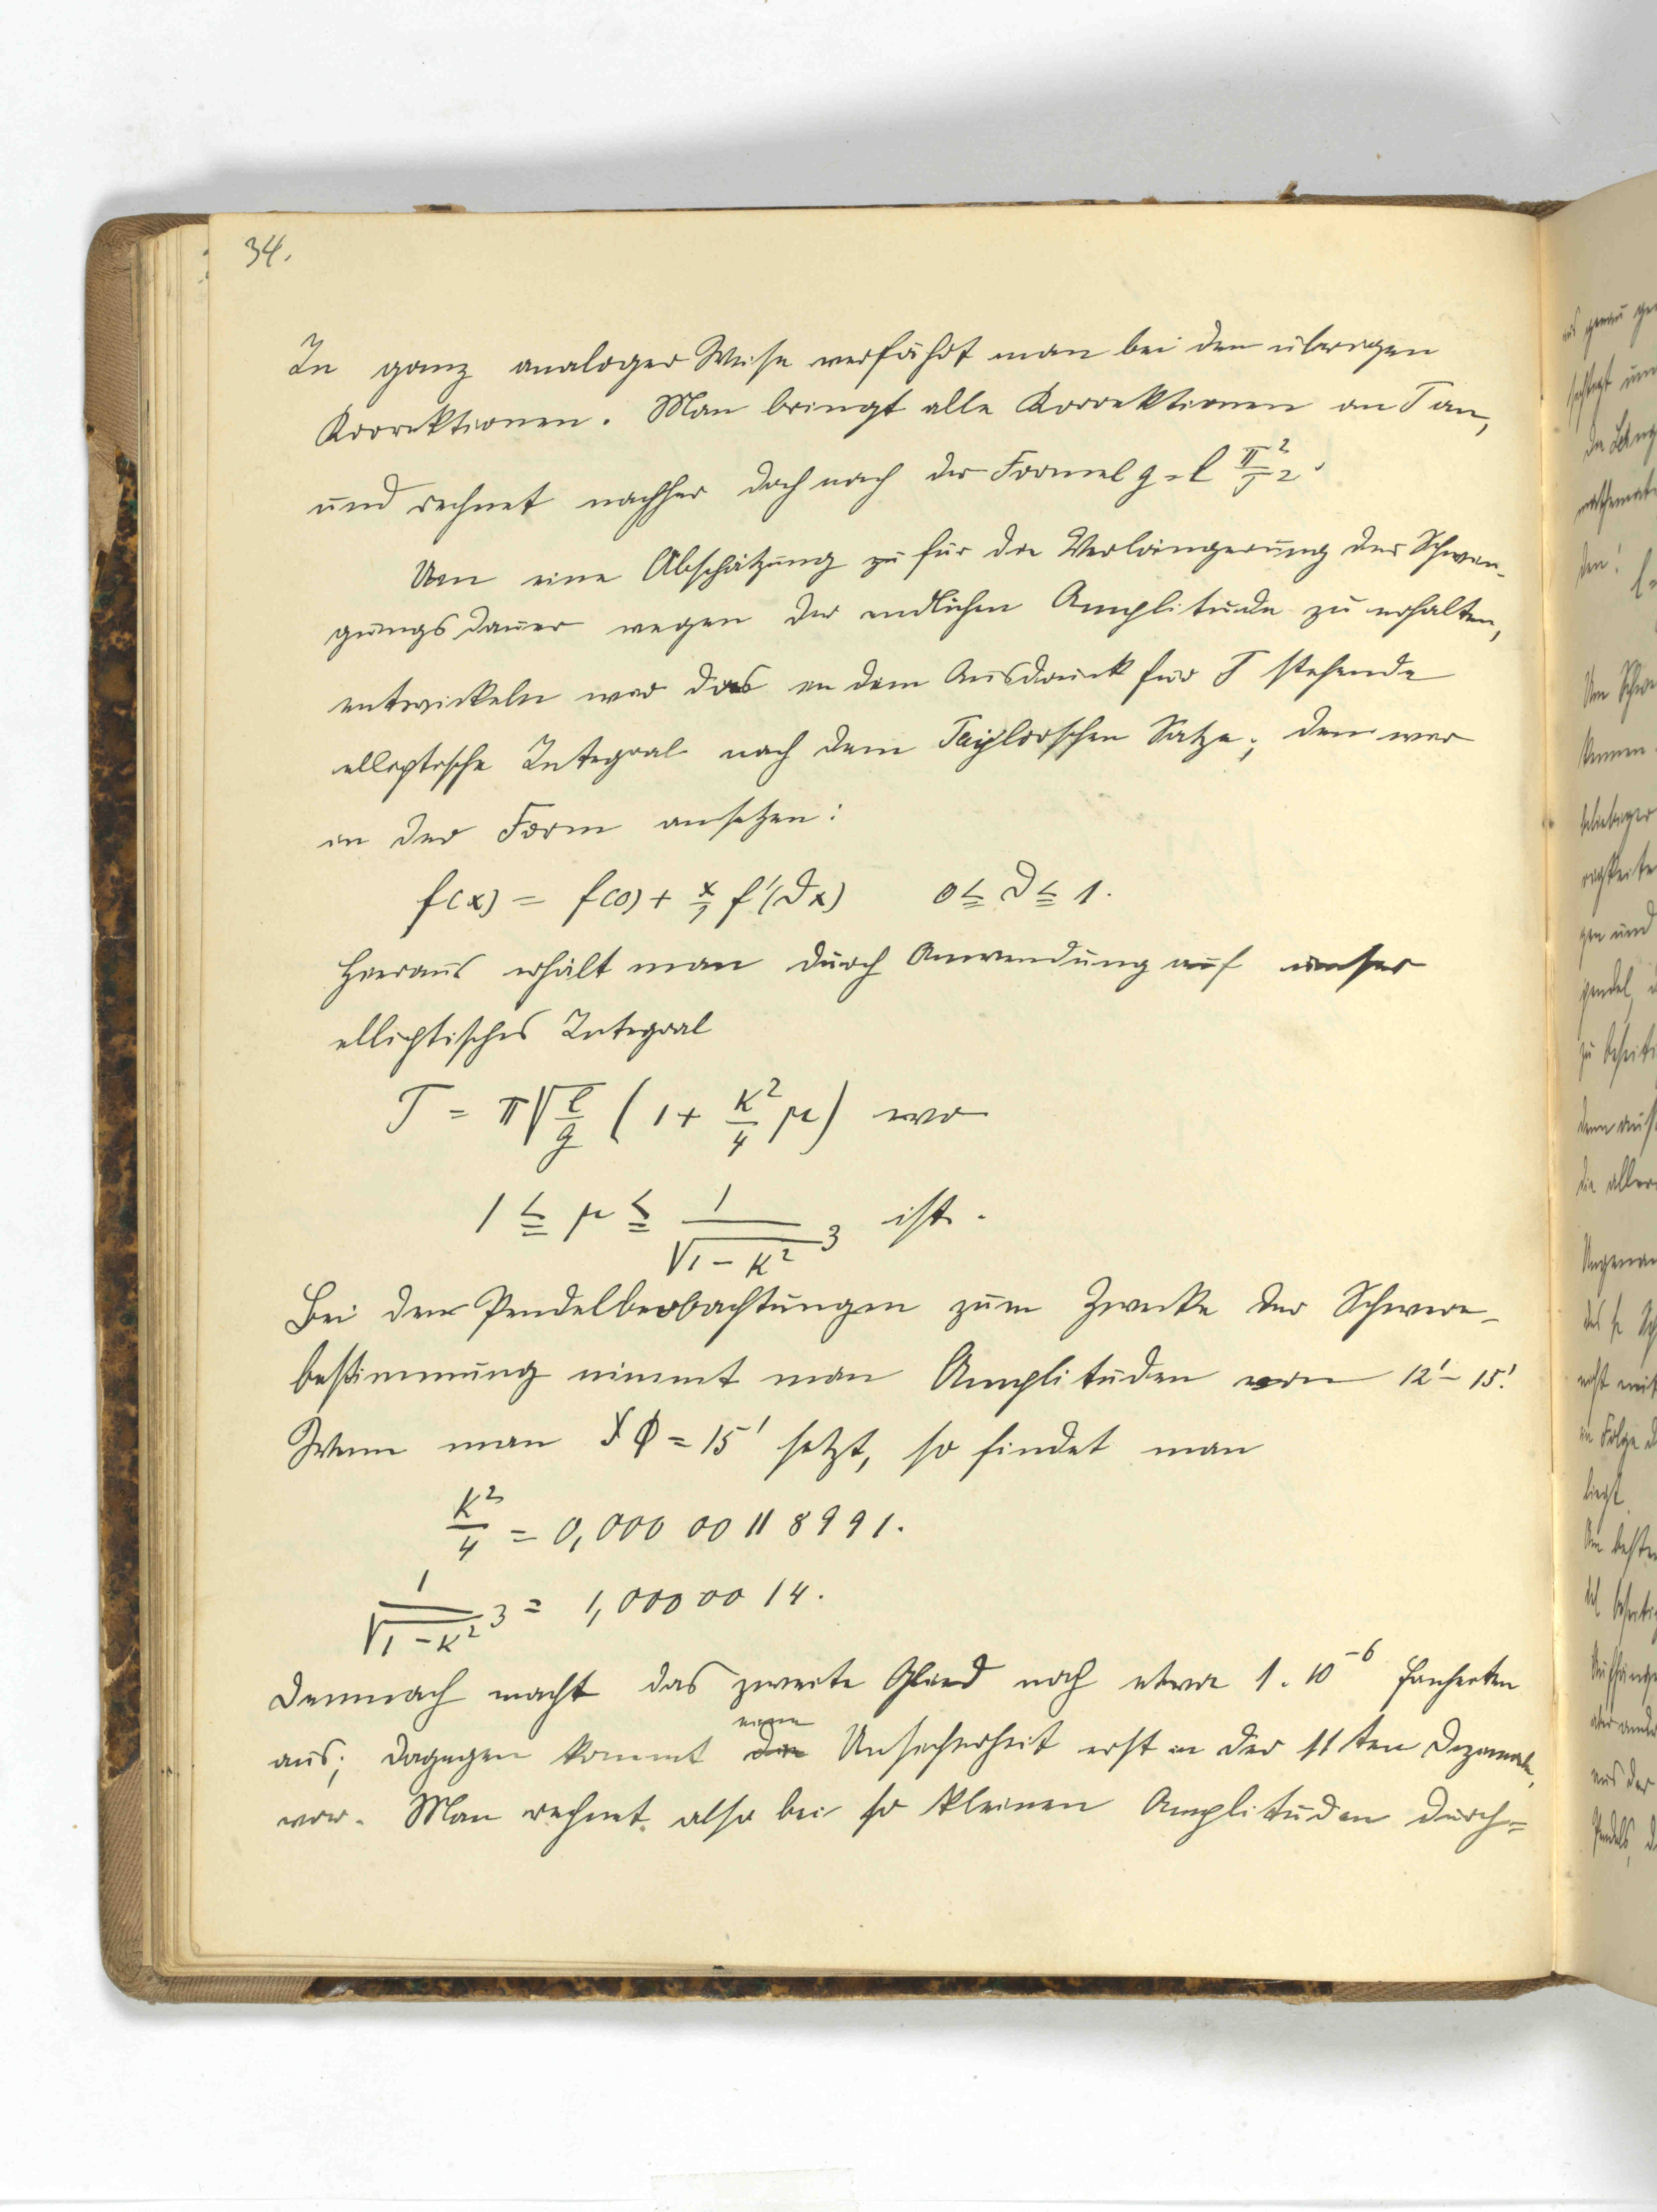 34.
In ganz analoger Weise verfährt man bei den übrigen
Korrektionen. Man bringt alle Korrektionen an T an,
und rechnet nachher doch nach der Formel g = l π²/T².
Um eine Abschätzung zu für die Verlängerung der Schwin-
gungsdauer wegen der endlichen Amplitude zu erhalten,
entwickeln wir das in dem Ausdruck für T stehende
elliptische Integral nach dem Taylorschen Satze, den wir
in der Form ansetzen:
f(x) = f(0) + x/1 f'(ϑx) 0 ≦ ϑ ≦ 1.
Hieraus erhält man durch Anwendung auf unser
elliptisches Integral
T = π√(l/g) (1 + K²/4 μ) wo
1 ≦ μ ≦ 1/√(1-K²)³ ist.
Bei den Pendelbeobachtungen zum Zwecke der Schwere-
bestimmung nimmt man Amplituden von 12' - 15'.
Wenn man Φ = 15' setzt, so findet man
K²/4 = 0,000 00 11 8991.
1/√(1-K²)³ = 1,000 00 14.
Demnach macht das zweite Glied noch etwa 1. 10⁻⁶ Einheiten
aus; dagegen kommt die eine Unsicherheit erst in der 11ten Dezimale,
vor. Man rechnet also bei so kleinen Amplituden durch=